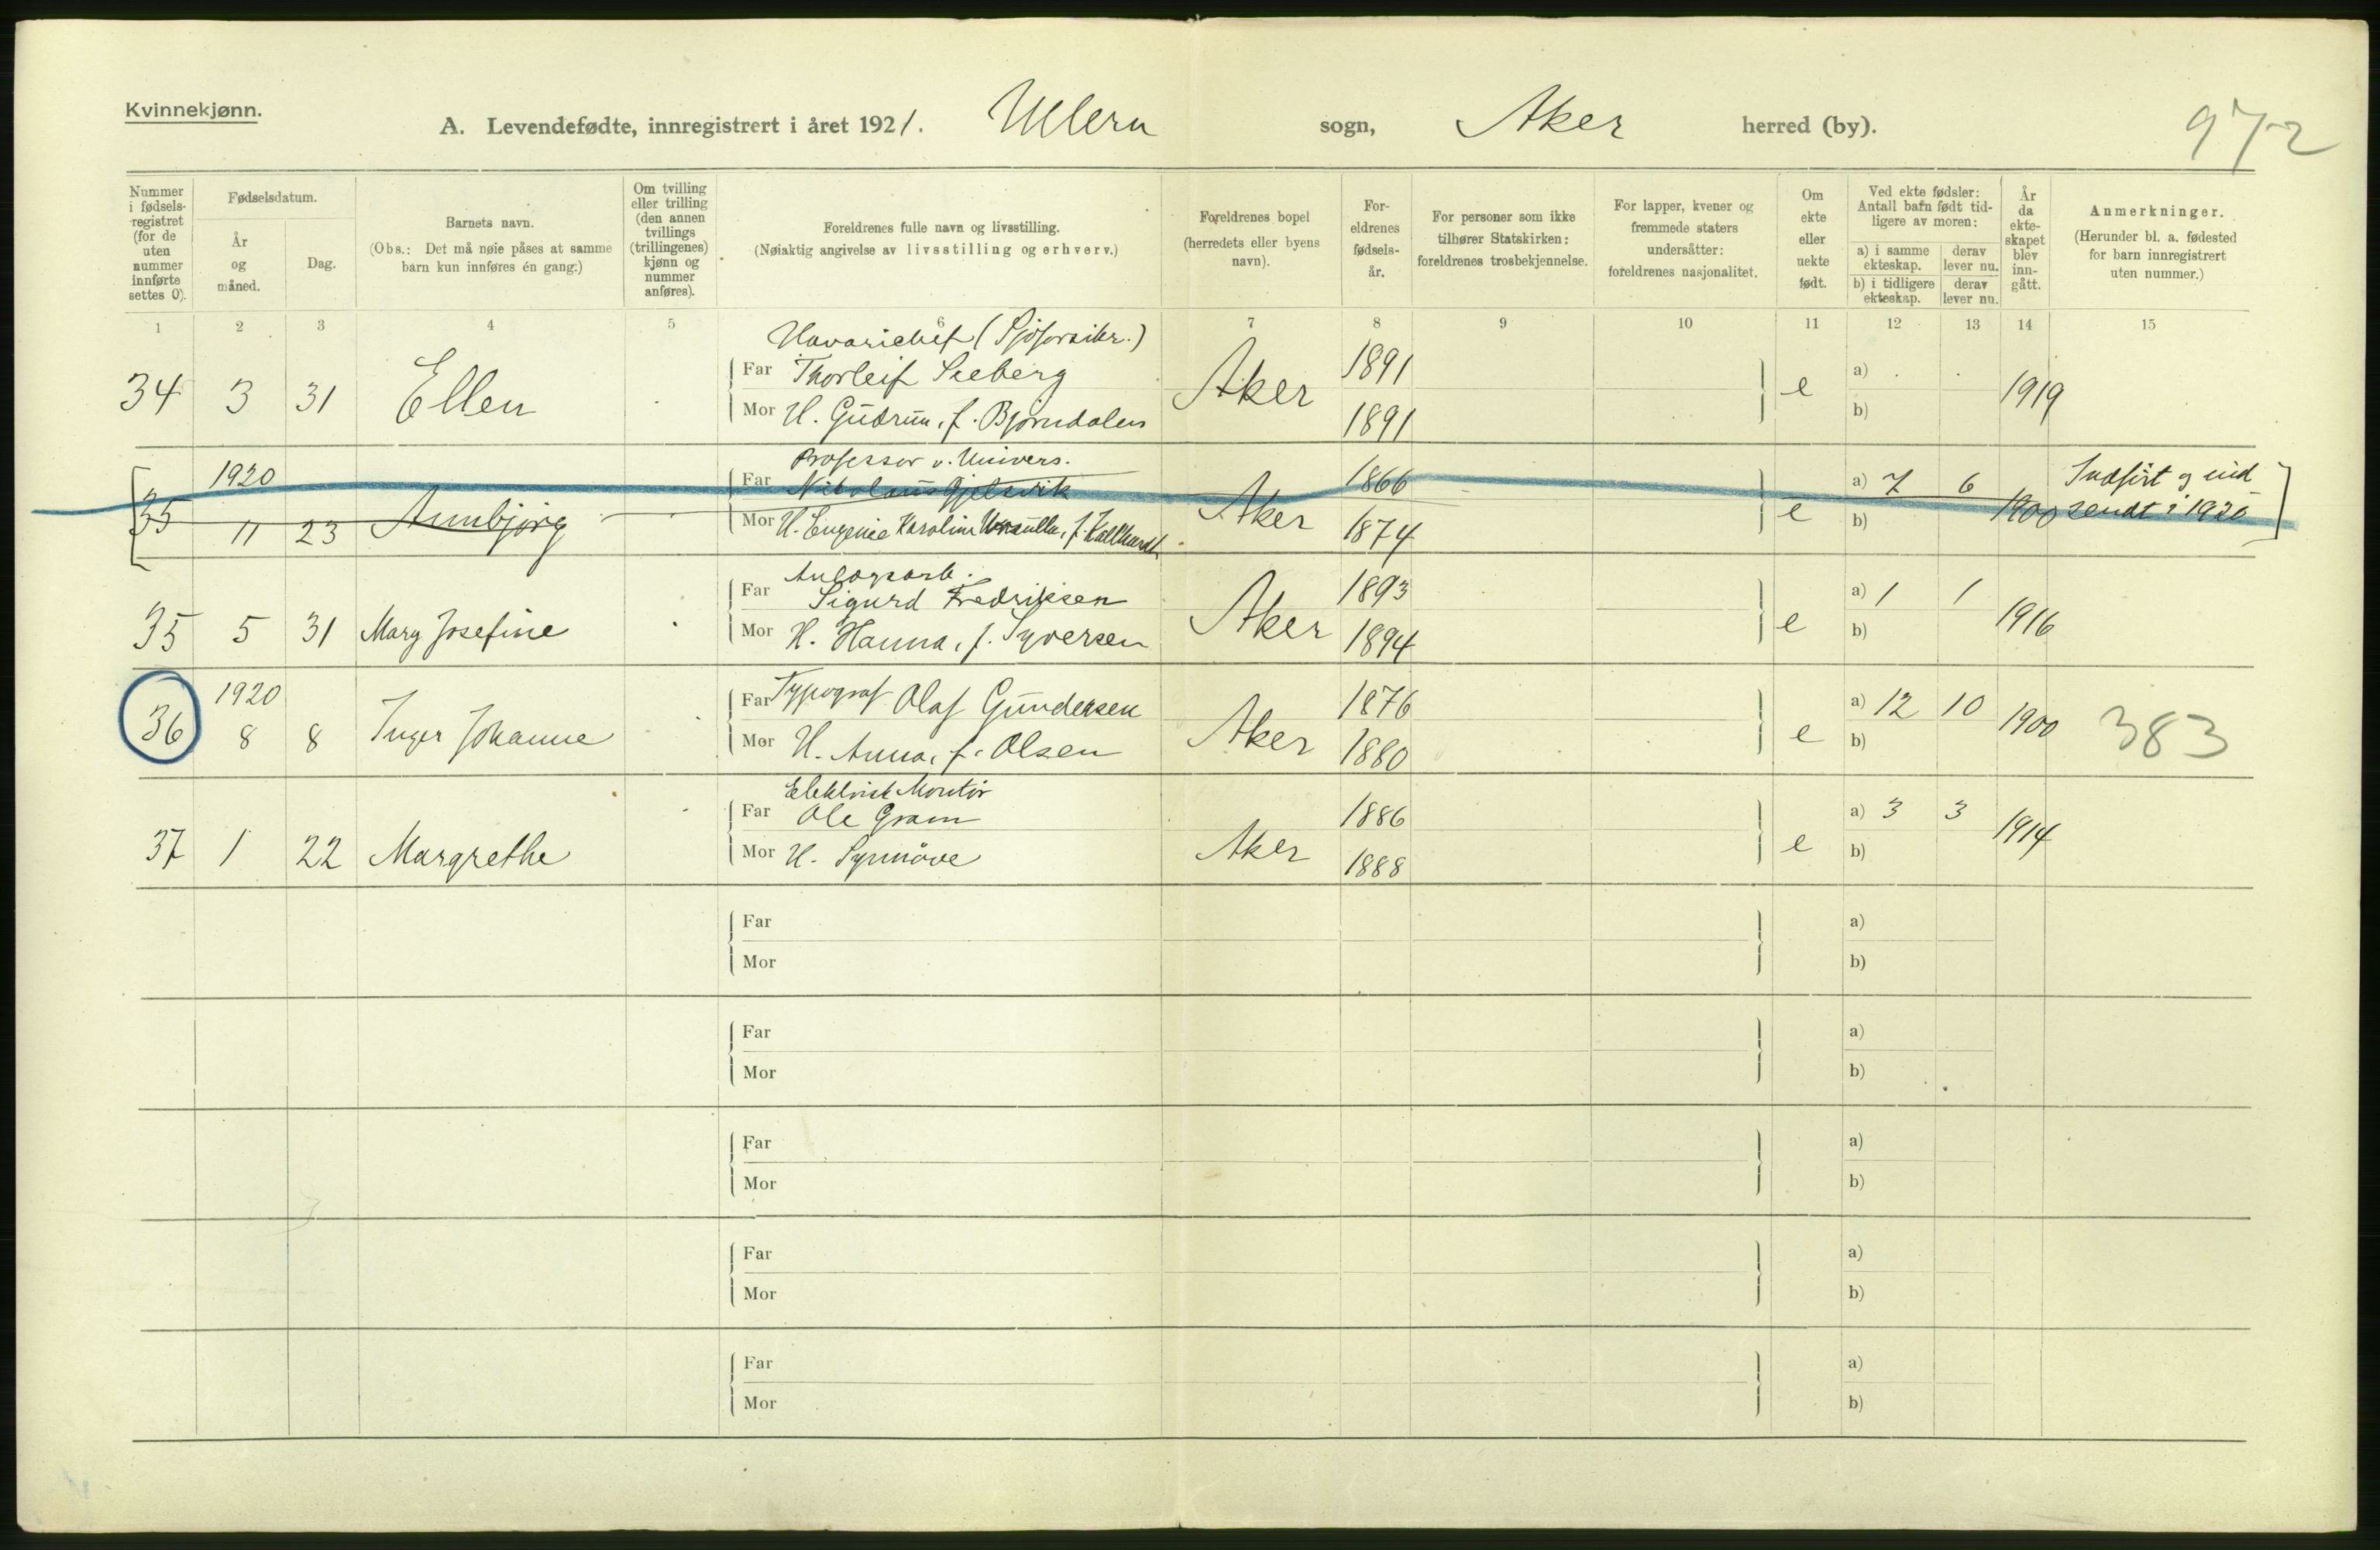 Kvinnekjønn.
A. Levendefødte, innregistrert i året 1921. Ullern sogn, Aker herred (by).
972
Nummer i fødsels-registret (for de uten nummer innførte settes 0).
Fødselsdatum.
År og måned.
Dag.
Barnets navn.
(Obs.: Det må nøie påses at samme barn kun innføres én gang.)
Om tvilling eller trilling (den annen tvillings (trillingenes) kjønn og nummer anføres).
Foreldrenes fulle navn og livsstilling.
(Nøiaktig angivelse av livsstilling og erhverv.)
Foreldrenes bopel (herredets eller byens navn).
For-eldrenes fødsels-år.
For personer som ikke tilhører Statskirken: foreldrenes trosbekjennelse.
For lapper, kvener og fremmede staters undersåtter: foreldrenes nasjonalitet.
Om ekte eller uekte født.
Ved ekte fødsler: Antall barn født tid-ligere av moren:
a) i samme ekteskap. derav lever nu.
b) i tidligere ekteskap. derav lever nu.
År da ekte-skapet blev inn-gått.
Anmerkninger.
(Herunder bl. a. fødested for barn innregistrert uten nummer.)
1 2 3 4 5 6 7 8 9 10 11 12 13 14 15
Havarichef (Sjøforsikr.)
Far Thorleif Seeberg 1891 a)
34 3 31 Ellen Aker e 1919
Mor H. Gudrun, f. Bjørndalen 1891 b)
Professor v. Univers.
1920 Far Nikolaus Gjelsvik 1866 a) 7 6 Indført og ind
35 11 23 Aunbjørg Aker e 1900 sendt i 1920
Mor H. Eugenie Karoline f. 1874 b)
Anlægsarb.
Far Sigurd Fredriksen 1893 a) 1 1
35 5 31 Mary Josefine Aker e 1916
Mor H. Hanna, f. Syversen 1894 b)
1920 Far Typograf Olaf Gundersen 1876 a) 12 10
36 8 8 Inger Johanne Aker e 1900 383
Mor H. Anna, f. Olsen 1880 b)
Elektrisk Montør
Far Ole Gram 1886 a) 3 3
37 1 22 Margrethe Aker e 1914
Mor H. Synnöve 1888 b)
Far a)
Mor b)
Far a)
Mor b)
Far a)
Mor b)
Far a)
Mor b)
Far a)
Mor b)